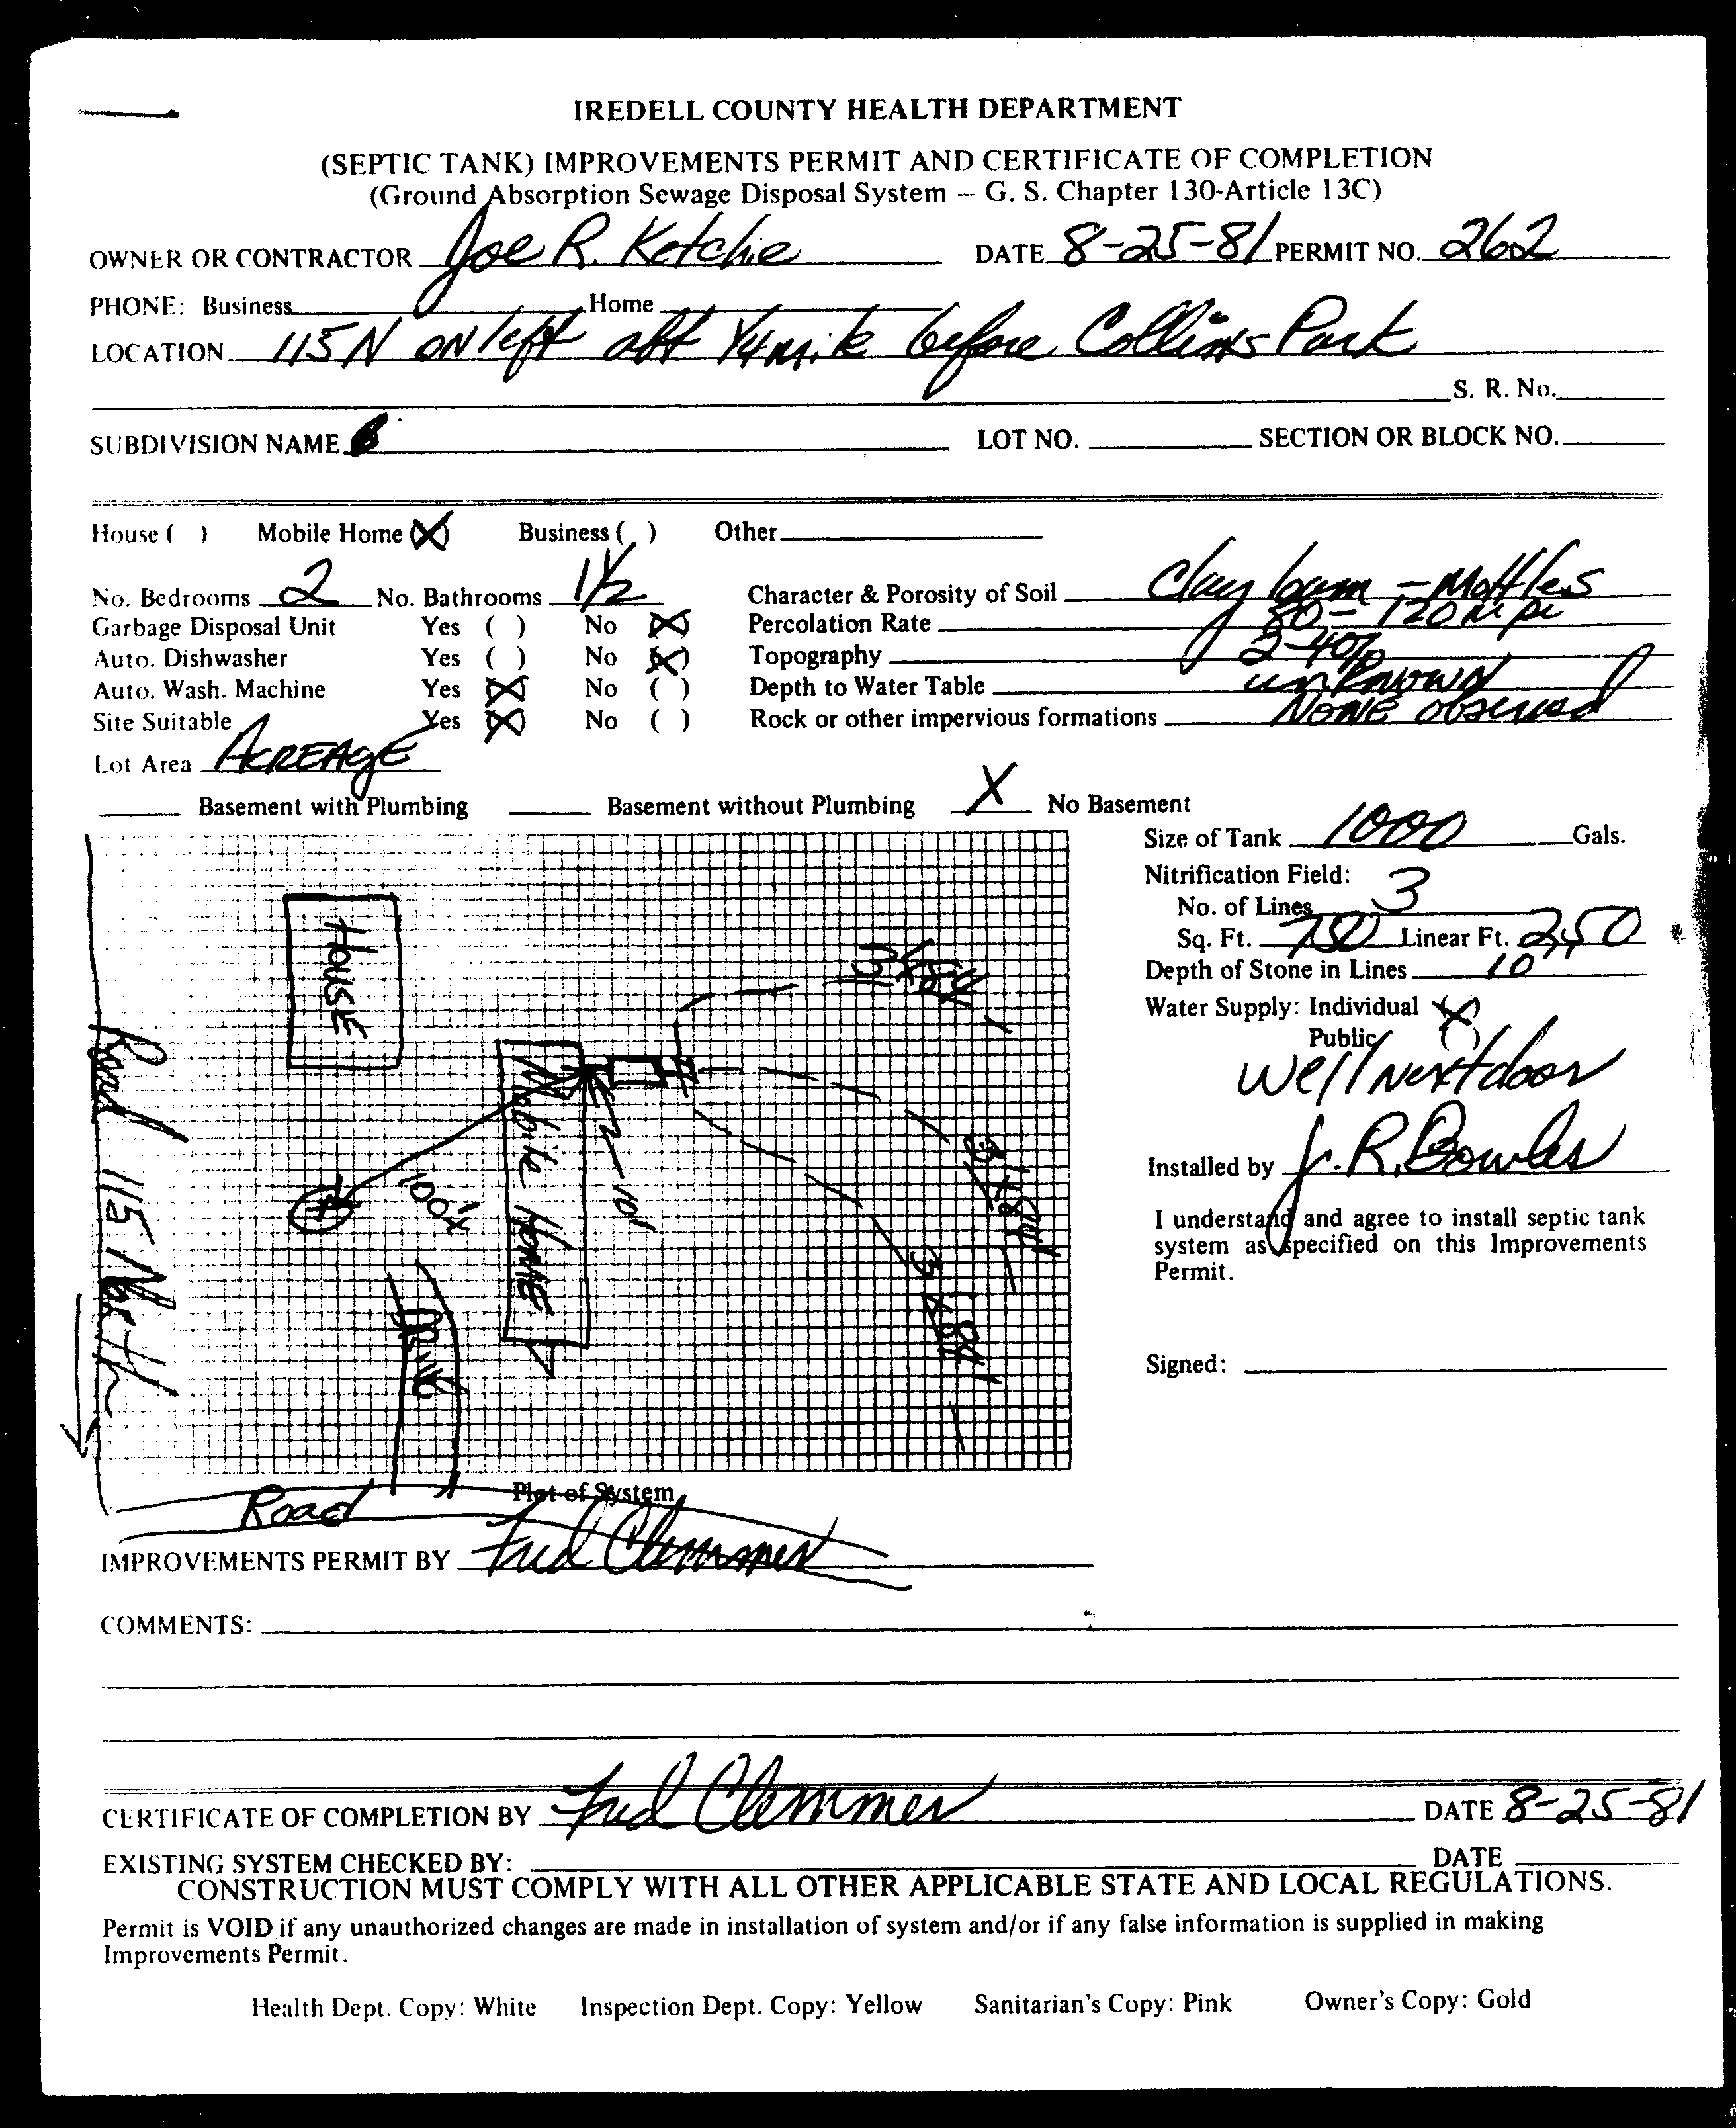 IREDELL COUNTY HEALTH DEPARTMENT
(SEPTIC TANK) IMPROVEMENTS PERMIT AND CERTIFICATE OF COMPLETION
(Ground Absorption Sewage Disposal System — G. S. Chapter 130-Article 13C)
OWNER OR CONTRACTOR Joe R. Ketchie DATE 8-25-81 PERMIT NO. 262
PHONE: Business Home
LOCATION 115 N on left abt 1/4 mile before Collins Park
S. R. No.
SUBDIVISION NAME LOT NO. SECTION OR BLOCK NO.
House ( ) Mobile Home (X) Business ( ) Other
No. Bedrooms 2 No. Bathrooms 1 1/2 Character & Porosity of Soil Clay loam - Mottles
Garbage Disposal Unit Yes ( ) No (X) Percolation Rate 80-120 mpi
Auto. Dishwasher Yes ( ) No (X) Topography 2-40%
Auto. Wash. Machine Yes (X) No ( ) Depth to Water Table unknown
Site Suitable Yes (X) No ( ) Rock or other impervious formations NONE observed
Lot Area ACREAGE
Basement with Plumbing Basement without Plumbing X No Basement
Size of Tank 1000 Gals.
Nitrification Field:
No. of Lines 3
Sq. Ft. 750 Linear Ft. 250
Depth of Stone in Lines 10"
Water Supply: Individual (X)
Public ( )
Well Next door
Installed by J. R. Bowles
I understand and agree to install septic tank
system as specified on this Improvements
Permit.
Signed:
HOUSE
Road 115 North
Mobile HOME
100'
10'
Drive
3 x 84'
3 x 84'
3 x 84'
Road
Plot of System
IMPROVEMENTS PERMIT BY Fred Clemmer
COMMENTS:
CERTIFICATE OF COMPLETION BY Fred Clemmer DATE 8-25-81
EXISTING SYSTEM CHECKED BY: DATE
CONSTRUCTION MUST COMPLY WITH ALL OTHER APPLICABLE STATE AND LOCAL REGULATIONS.
Permit is VOID if any unauthorized changes are made in installation of system and/or if any false information is supplied in making
Improvements Permit.
Health Dept. Copy: White Inspection Dept. Copy: Yellow Sanitarian's Copy: Pink Owner's Copy: Gold